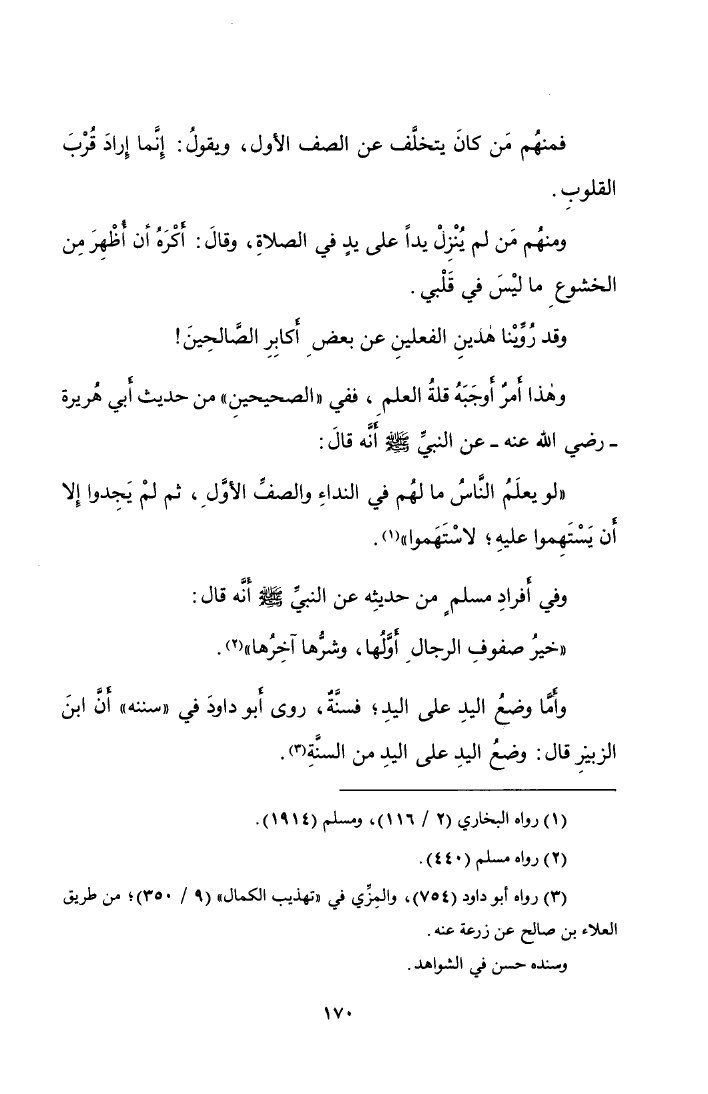 فمنهُم مَن كانَ يتخلَّف عن الصف الأول، ويقولُ: إِنَّما إِرادَ قُرْبَ
القلوبِ.
ومنهُم مَن لم يُنْزِلْ يداً على يدٍ في الصلاةِ، وقالَ: أَكْرَهُ أن أُظْهِرَ مِن
الخشوعِ ما ليْسَ في قَلْبي.
وقد رُوِّيْنا هٰذينِ الفعلينِ عن بعضِ أَكابِرِ الصَّالحِينَ!
وهٰذا أَمرٌ أَوجَبَهُ قلةُ العلمِ، ففي «الصحيحينِ» من حديث أَبي هُريرة
ـ رضي الله عنه ـ عن النبيِّ ﷺ أَنَّه قالَ:
«لو يعلَمُ النَّاسُ ما لهُم في النداءِ والصفِّ الأوَّلِ، ثم لمْ يَجِدوا إِلا
أَن يَسْتَهِموا عليهِ؛ لاسْتَهَموا»(١).
وفي أَفرادِ مسلمٍ من حديثِه عن النبيِّ ﷺ أَنَّه قال:
«خيرُ صفوفِ الرجالِ أَوَّلُها، وشرُّها آخِرُها»(٢).
وأَمَّا وضعُ اليدِ على اليدِ؛ فسنَّةٌ، روى أَبو داودَ في «سننه» أَنَّ ابنَ
الزبيرِ قال: وضعُ اليدِ على اليدِ من السنَّةِ(٣).
(١) رواه البخاري (٢ / ١١٦)، ومسلم (١٩١٤).
(٢) رواه مسلم (٤٤٠).
(٣) رواه أبو داود (٧٥٤)، والمِزِّي في «تهذيب الكمال» (٩ / ٣٥٠)؛ من طريق
العلاء بن صالح عن زرعة عنه.
وسنده حسن في الشواهد.
١٧٠